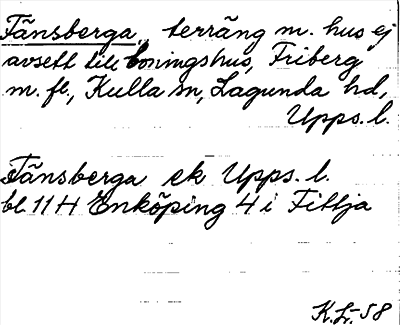 Tänsberga, terräng m. hus ej
avsett till boningshus, Friberg
m. fl., Kulla sn, Lagunda hd,
Upps. l.
Tänsberga ek Upps. l.
bl. 11 H Enköping 4 i Fittja
K.L.-58